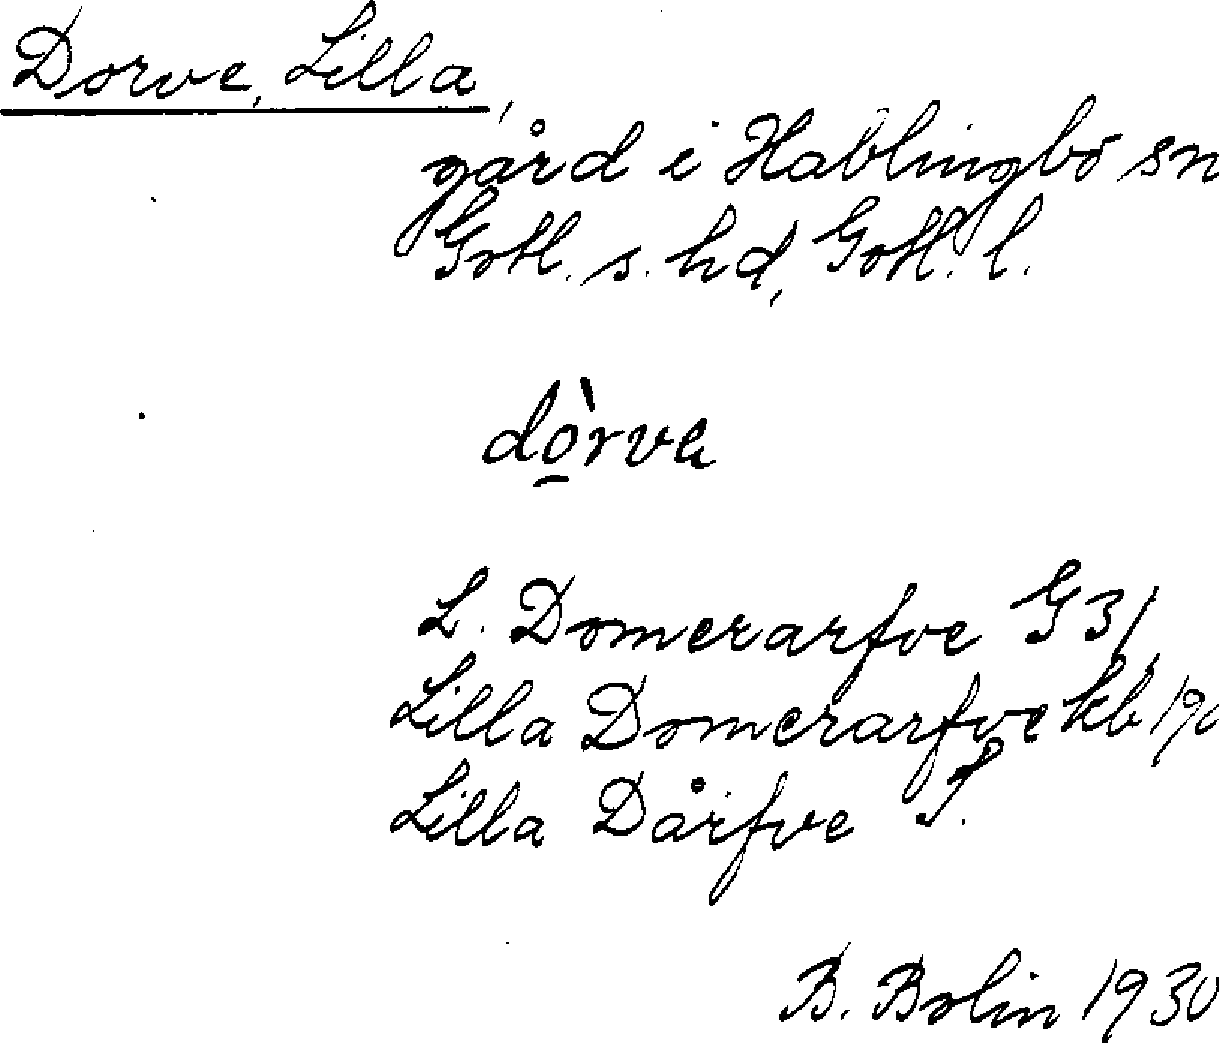 Dorve, Lilla,
gård i Hablingbo sn
Gotl. s. hd, Gotl. l.
dòrva
L. Domerarfve G 31,
Lilla Domerarfve kb 190
Lilla Dårfve J.
B. Bolin 1930